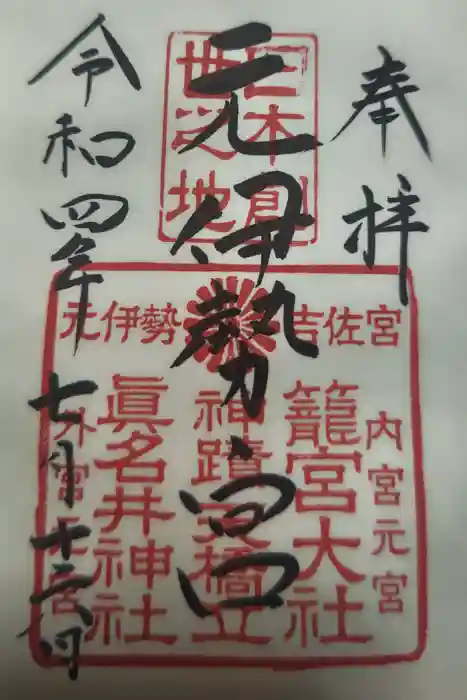 奉拝
日本創
世之地
元伊勢宮
吉佐宮
元伊勢
内宮元宮
籠宮大社
神蹟天橋立
眞名井神社
外宮元宮
令和四年
七月十六日